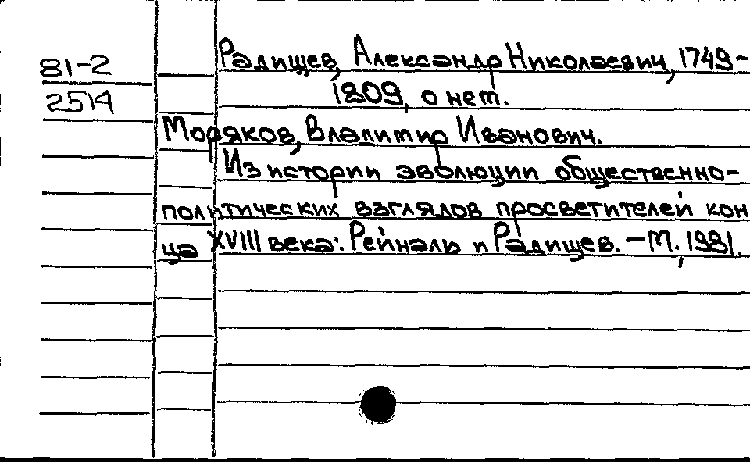 81-2 Радищев, Александр Николаевич, 1749-
2514 1809, о нем.
Моряков, Владимир Иванович.
Из истории эволюции общественно-
политических взглядов просветителей кон
ца XVIII века: Рейналь и Радищев. – М., 1981.